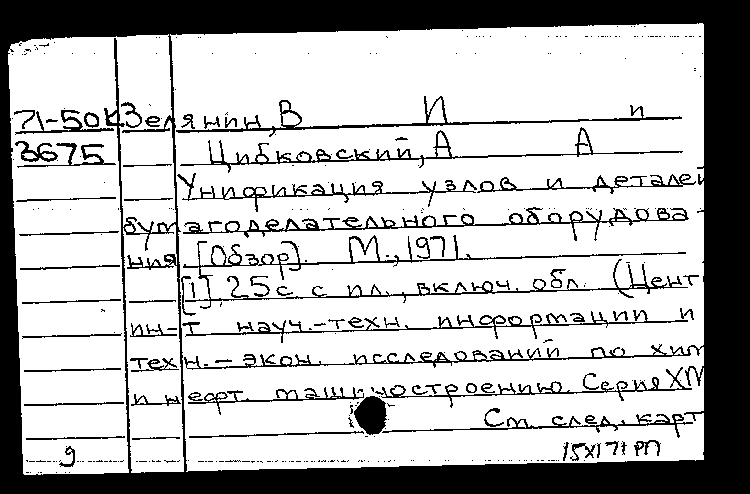 71-50К Зелянин, В И и
3675 Цибковский, А А
Унификация узлов и деталей
бумагоделательного оборудова-
ния. [Обзор]. М., 1971.
[1], 25 с. с ил., включ. обл. (Цент
ин-т науч.-техн. информации и
техн.-экон. исследований по хим
и нефт. машиностроению. Серия ХМ
См. след. карт
9 15 XI 71 РП